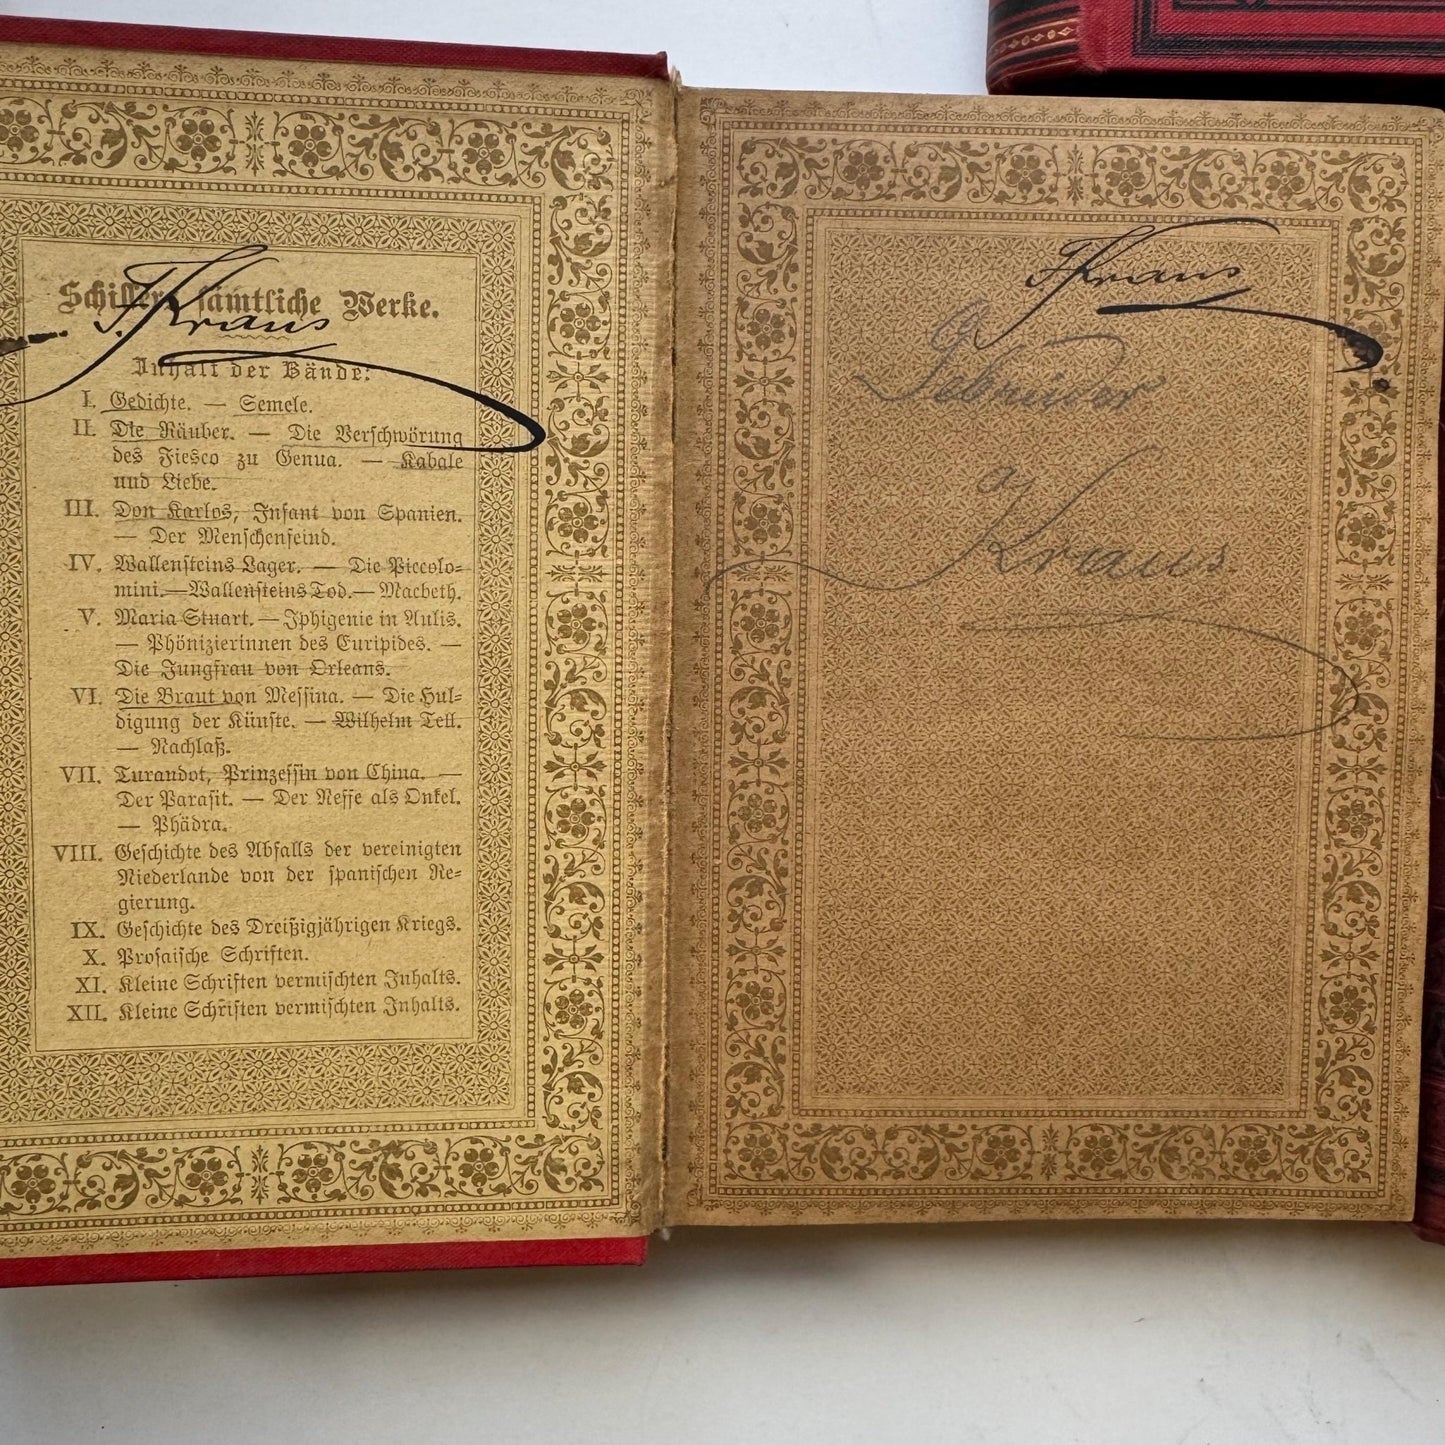 Schillers sämtliche Werke.
F. Kraus
Inhalt der Bände:
I. Gedichte. — Semele.
II. Die Räuber. — Die Verschwörung
des Fiesco zu Genua. — Kabale
und Liebe.
III. Don Karlos, Infant von Spanien.
— Der Menschenfeind.
IV. Wallensteins Lager. — Die Piccolo-
mini. — Wallensteins Tod. — Macbeth.
V. Maria Stuart. — Iphigenie in Aulis.
— Phönizierinnen des Euripides. —
Die Jungfrau von Orleans.
VI. Die Braut von Messina. — Die Hul-
digung der Künste. — Wilhelm Tell.
— Nachlaß.
VII. Turandot, Prinzessin von China. —
Der Parasit. — Der Neffe als Onkel.
— Phädra.
VIII. Geschichte des Abfalls der vereinigten
Niederlande von der spanischen Re-
gierung.
IX. Geschichte des Dreißigjährigen Kriegs.
X. Prosaische Schriften.
XI. Kleine Schriften vermischten Inhalts.
XII. Kleine Schriften vermischten Inhalts.
F Kraus
Gebrüder
Kraus.